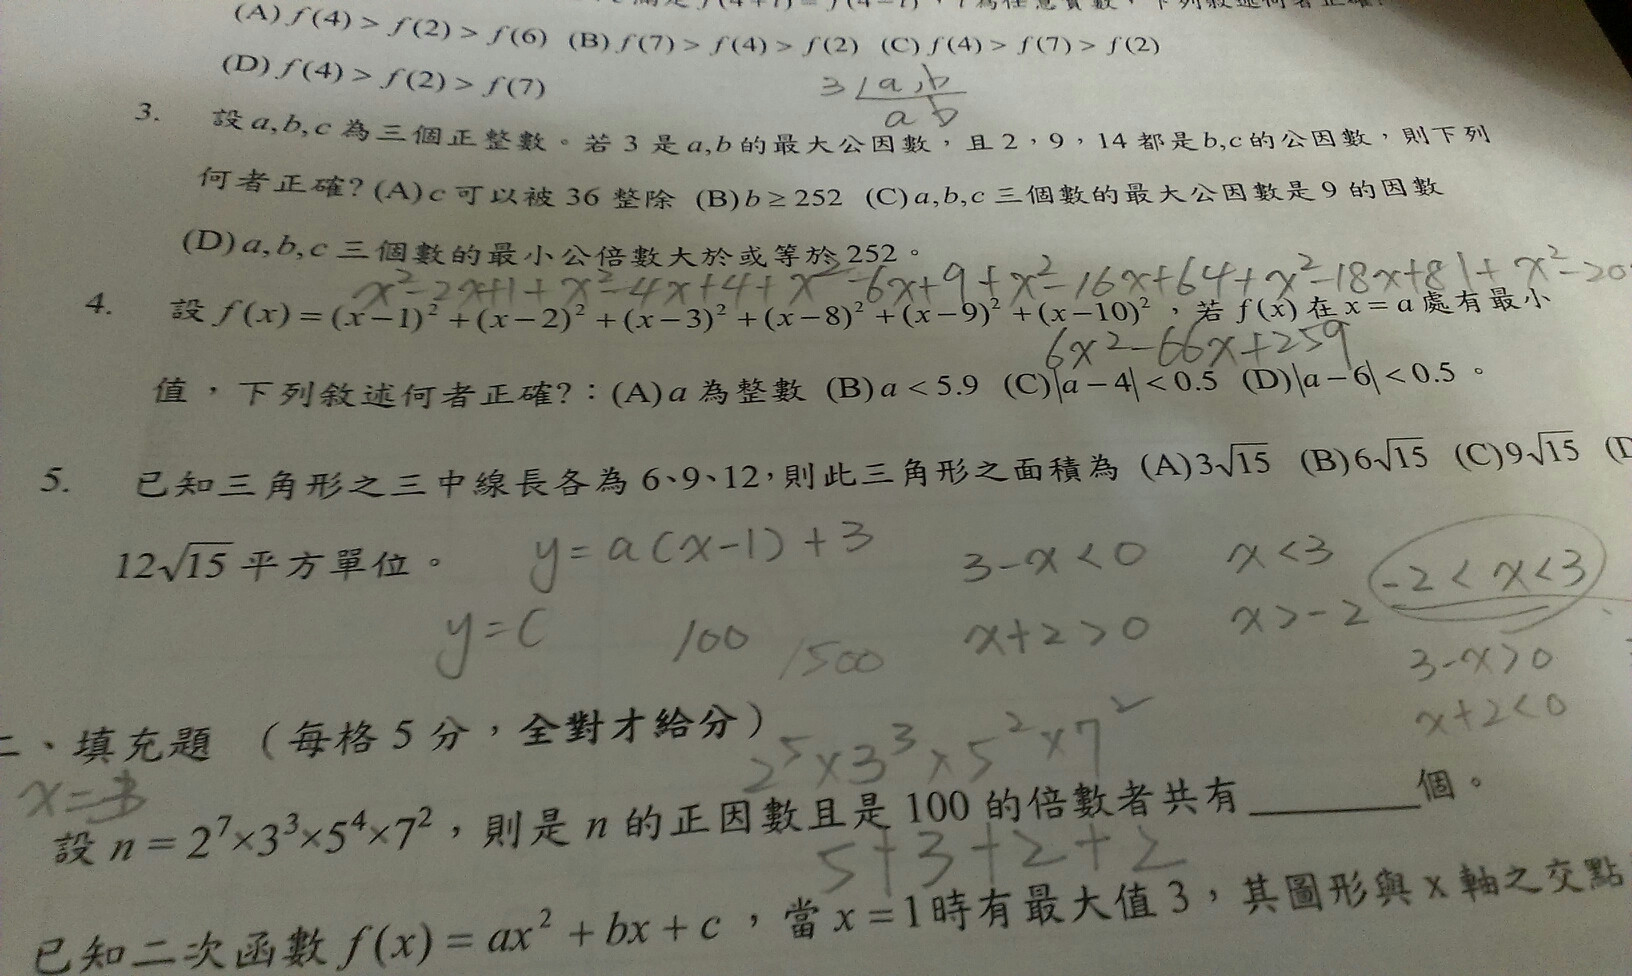 (A) f(4) > f(2) > f(6) (B) f(7) > f(4) > f(2) (C) f(4) > f(7) > f(2)
(D) f(4) > f(2) > f(7)
3 a, b
a b
3. 設 a,b,c 為三個正整數。若 3 是 a,b 的最大公因數，且 2，9，14 都是 b,c 的公因數，則下列
何者正確? (A) c 可以被 36 整除 (B) b ≥ 252 (C) a,b,c 三個數的最大公因數是 9 的因數
(D) a,b,c 三個數的最小公倍數大於或等於 252。
x²-2x+1+x²-4x+4+x²-6x+9+x²-16x+64+x²-18x+81+x²-20
4. 設 f(x) = (x-1)² + (x-2)² + (x-3)² + (x-8)² + (x-9)² + (x-10)²，若 f(x) 在 x = a 處有最小
6x²-66x+259
值，下列敘述何者正確?：(A) a 為整數 (B) a < 5.9 (C) |a-4| < 0.5 (D) |a-6| < 0.5。
5. 已知三角形之三中線長各為 6、9、12，則此三角形之面積為 (A) 3√15 (B) 6√15 (C) 9√15 (D
12√15 平方單位。
y=a(x-1)+3 3-x<0 x<3 -2<x<3
y=C 100 1500 x+2>0 x>-2
3-x>0
x+2<0
二、填充題 （每格 5 分，全對才給分）
2⁵×3³×5²×7²
設 n = 2⁷×3³×5⁴×7²，則是 n 的正因數且是 100 的倍數者共有________個。
5+3+2+2
已知二次函數 f(x) = ax² + bx + c，當 x = 1 時有最大值 3，其圖形與 x 軸之交點